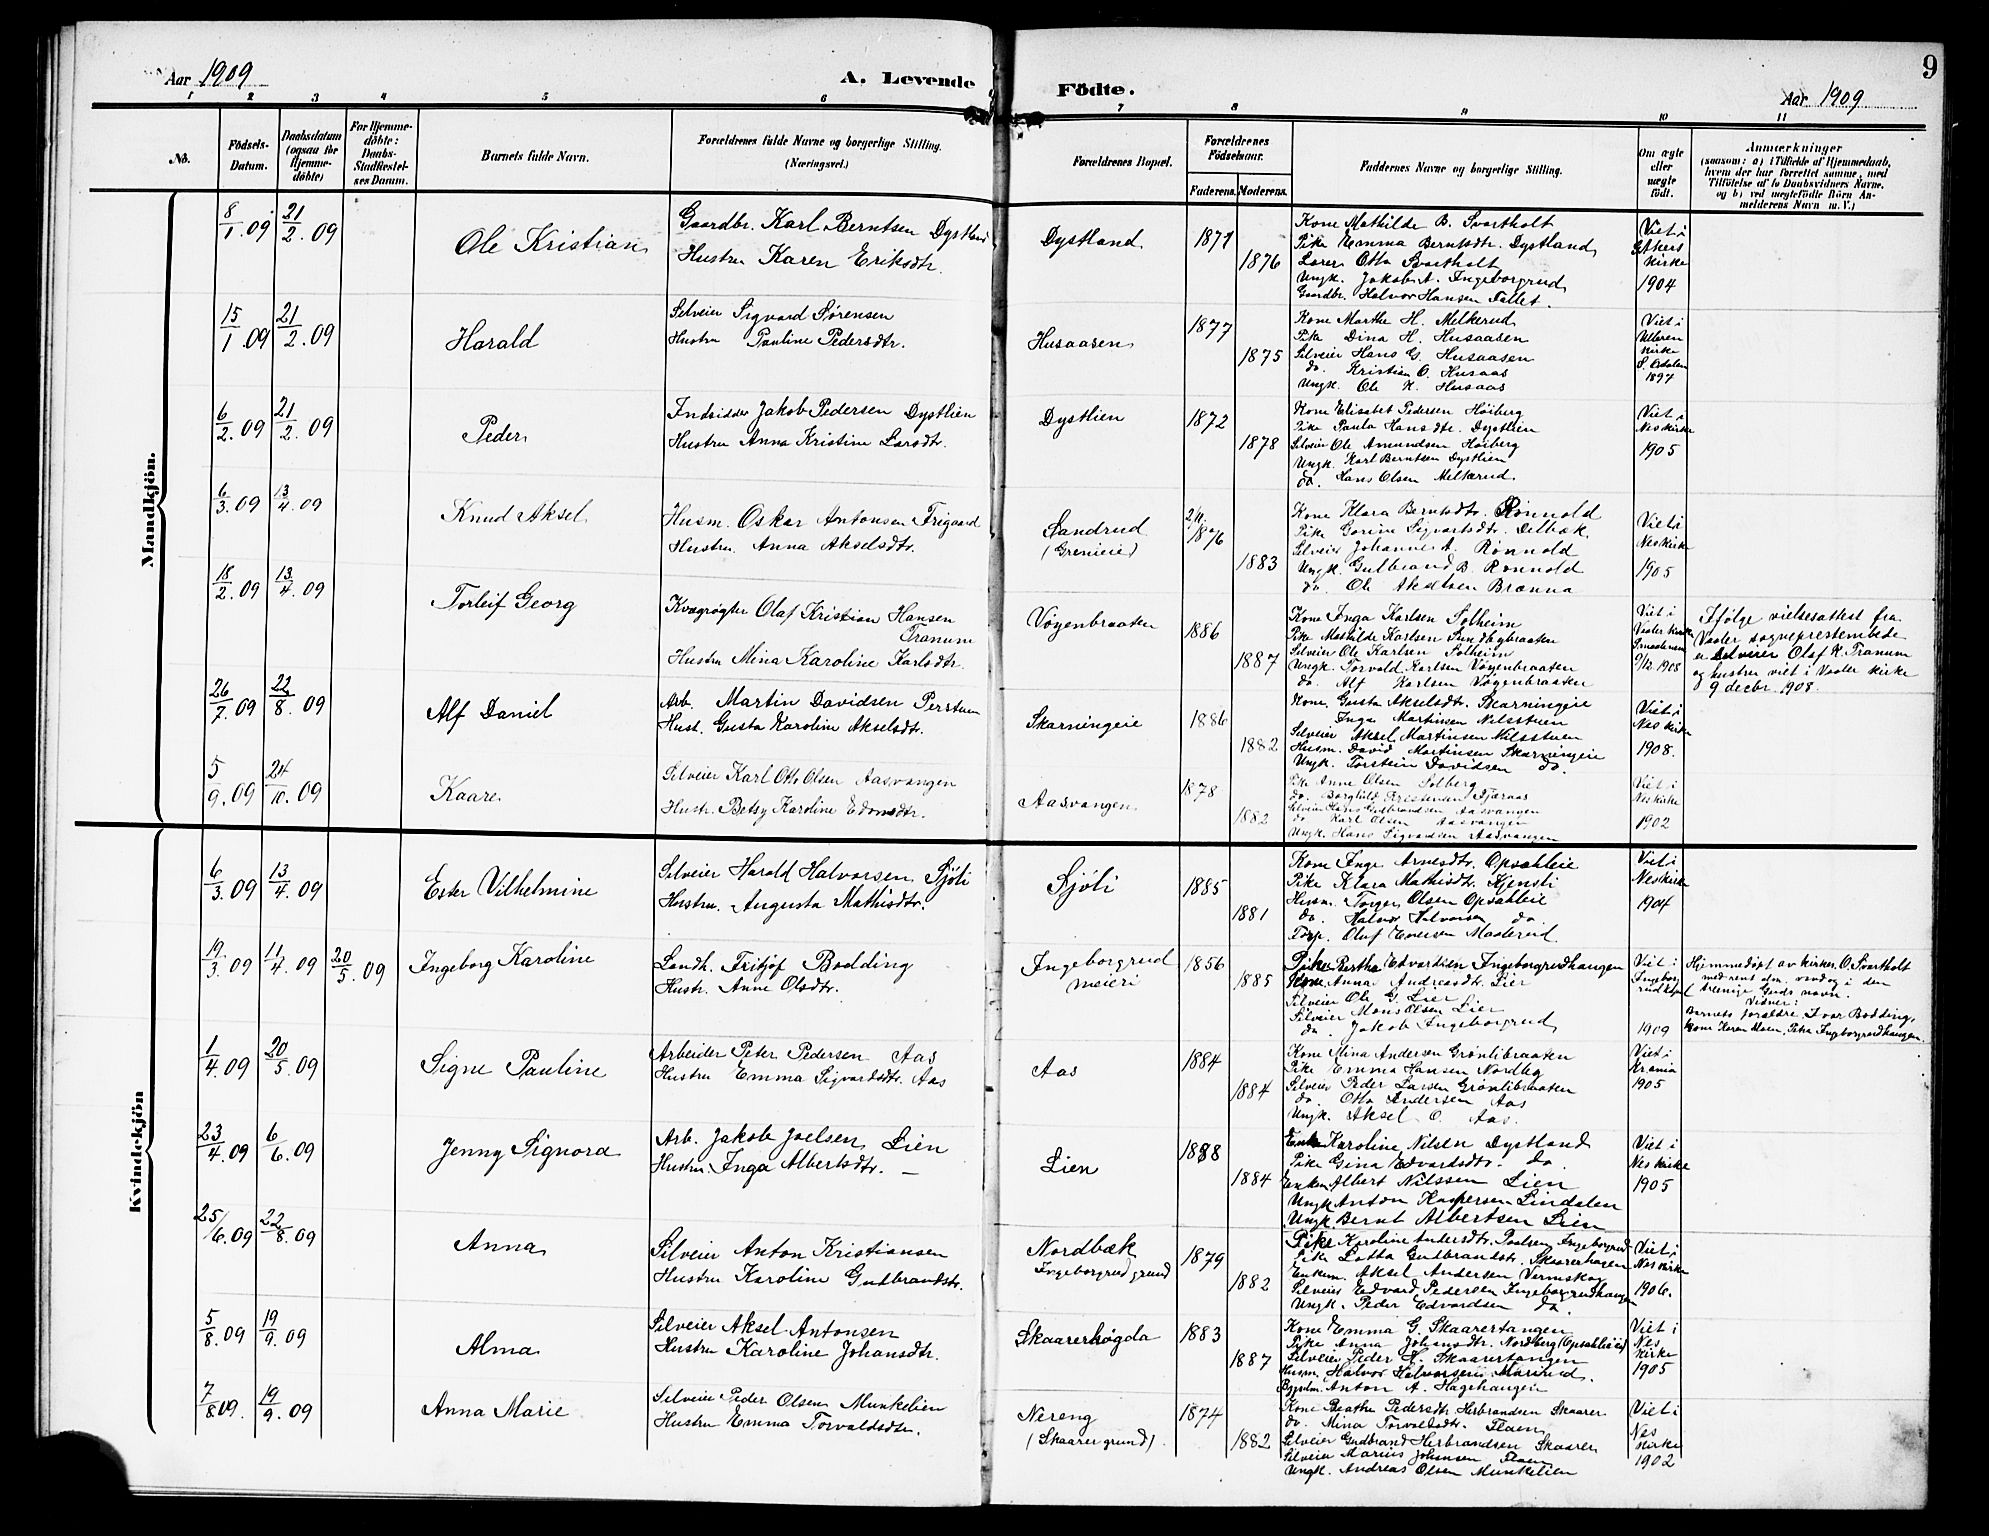 Aar 1909
A. Levende
Födte.
Aar 1909
9
1 2 3 4 5 6 7 8 9 10 11
No.
Födsels-Datum.
Daabsdatum (ogsaa for Hjemme-döbte)
For Hjemme-döbte: Daabs-Stadfæstel-ses Datum.
Barnets fulde Navn.
Forældrenes fulde Navne og borgerlige Stilling. (Næringsvei.)
Forældrenes Bopæl.
Forældrenes Födselsaar.
Faderens. Moderens.
Faddernes Navne og borgerlige Stilling.
Om ægte eller uægte født.
Anmærkninger
(saasom: a) i Tilfælde af Hjemmedaab,
hvem der har forrettet samme, med
Tilföielse af to Daabsvidners Navne,
og b) ved uægtefödte Börn An-
melderens Navn m. V.)
Mandkjön.
8/1. 09 21/2. 09 Ole Kristian
Gaardbr. Karl Berntsen Dystland
Hustru Karen Eriksdtr.
Dystland 1871 1876
Kone Mathilde B. Svartholt
Pike Emma Berntsdtr. Dystland
Lærer Otto Svartholt
Ungk. Jakob A. Ingeborgrud
Gaardbr. Halvor Hansen Fallet.
Viet i
kirke
1904
15/1. 09 21/2. 09 Harald
Selveier Sigvard Sørensen
Hustru Pauline Pedersdtr.
Husaasen 1877 1875
Kone Marthe H. Melkerud
Pike Dina H. Husaasen
Selveier Hans G. Husaasen
do. Kristian O. Husaas
Ungk. Ole K. Husaas
Viet i
Ulleren
kirke
S. Odalen
1897
6/2. 09 21/2. 09 Peder
Indsidder Jakob Pedersen Dystlien
Hustru Anna Kristine Larsdtr.
Dystlien 1872 1878
Kone Elisabet Pedersen Høiberg
Pike Paula Hansdtr. Dystlien
Selveier Ole Amundsen Høiberg
Ungk. Karl Berntsen Dystlien
do. Hans Olsen Melkerud.
Viet i
Nes kirke
1905
6/3. 09 13/4. 09 Knud Aksel
Husm. Oskar Antonsen Frigaard
Hustru. Anna Akselsdtr.
Sandrud
(Grenieie) 2/11. 1876 1883
Kone Klara Berntsdtr. Rønnold
Pike Gorine Sigvartsdtr. Delbak
Selveier Johannes A. Rønnold
Ungk. Gulbrand B. Rønnold
do. Ole Akselsen Brænna
Viet i
Nes kirke
1905
18/2. 09 13/4. 09 Torleif Georg
Kvægrøgter Olaf Kristian Hansen
Tranum
Hustru Mina Karoline Karlsdtr.
Vøyenbraaten 1886 1887
Kone Inga Karlsen Solheim
Pike Mathilde Karlsen Sundbybraaten
Selveier Ole Karlsen Solheim
Ungk. Torvald Karlsen Vøyenbraaten
do. Alf Karlsen Vøyenbraaten
Viet i
Vaaler kirke
Smaalenene
9/12. 1908
Ifølge vielsesattest fra
Vaaler sogneprestembede
er Selveier Olaf K. Tranum
og hustru viet i Vaaler kirke
9 decbr. 1908.
26/7. 09 22/8. 09 Alf Daniel
Arb. Martin Davidsen Perstuen
Hust. Gusta Karoline Akselsdtr.
Skarningeie 1886 1882
Kone Gusta Akselsdtr. Skarningeie
Inga Martinsen Nilsstuen
Selveier Aksel Martinsen Nilsstuen
Husm. David Martinsen Skarningeie
Ungk. Torstein Davidsen do.
Viet i
Nes kirke
1908.
5/9. 09 24/10. 09 Kaare
Selveier Karl Otto Olsen Aasvangen
Hustr. Betsy Karoline Edvardsdtr.
Aasvangen 1878 1882
Pike Anne Olsen Solberg
do. Borghild Kristensen Fjæraas
Selveier Hans Gudbrandsen Aasvangen
do Karl Olsen Aasvangen
Ungk. Hans Sigvardsen Aasvangen
Viet i
Nes kirke
1902
Kvindekjön
6/3. 09 13/4. 09 Ester Vilhelmine
Selveier Harald Halvorsen Sjöli
Hustru. Augusta Mathisdtr.
Sjöli 1885 1881
Kone Inga Arnesdtr. Opsahleie
Pike Klara Mathisdtr. Kjensli
Husm. Torger Olsen Opsahleie
do. Halvor Halvorsen do.
Torp. Olaf Evensen Maalerud.
Viet i
Nes kirke
1904
19/3. 09 11/4. 09 20/5. 09 Ingeborg Karoline
Landh. Fritjof Bodding
Hustr. Anne Olsdtr.
Ingeborgrud
meieri 1856 1885
Pike Bertha Edvardsen Ingeborgrudhaugen
Kone Anna Andreasdtr. Lier
Selveier Ole G. Lier
Selveier Mons Olsen Lier
do. Jakob Ingeborgrud
Viet i
Ingeborg
1909
Hjemmedøpt av kirkes. O. Svartholt
med rent den. vand og i den
treenige Guds navn.
Vidner:
Barnets forældre, Ivar Bodding,
kone Karen Moen, Pike Ingeborgrudhaugen
1/4. 09 20/5. 09 Signe Pauline
Arbeider Peter Pedersen Aas
Hustru Emma Sigvardsdtr. Aas
Aas 1884 1884
Kone Stina Andersen Grønlibraaten
Pike Emma Hansen Nordby
Selveier Peder Larsen Grønlibraaten
do. Otto Andersen Aas
Ungk. Aksel O. Aas.
Viet i
Krania
1905
23/4. 09 6/6. 09 Jenny Signora
Arb. Jakob Joelsen Lien
Hustru. Inga Albertsdtr. —
Lien 1888 1884
Enke Karoline Nilsen Dystland
Pike Gina Edvardsdtr. do.
Enkem. Albert Nilssen Lien
Ungk. Anton Kaspersen Lindalen
Ungk. Bernt Albertsen Lien
Viet i
Nes kirke
1905
25/6. 09 22/8. 09 Anna
Selveier Anton Kristiansen
Hustru Karoline Gudbrandsdtr.
Nordbæk
Ingeborgrud grund 1879 1882
Pike Karoline Andersdtr. Paalsen Ingeborgrud
Pike Lotta Gudbrandsdtr. Skaarerhagen
Enkem. Aksel Andersen Vermskog
Selveier Edvard Pedersen Ingeborgrudhaugen
Ungk. Peder Edvardsen do.
Viet i
Nes kirke
1906.
5/8. 09 19/9. 09 Alma
Selveier Aksel Antonsen
Hustru Karoline Johansdtr.
Skaarerhøgda 1883 1887
Kone Emma G. Skaarertangen
Pike Anna Johansdtr. Nordberg (Opsahleie)
Selveier Peder H. Skaarertangen
Husm. Halvor Halvorsen Marirud.
Bygselm. Anton A. Hagehaugen
Viet i
Nes
kirke
1905
7/8 09. 19/9. 09 Anna Marie
Selveier Peder Olsen Munkelien
Hustru Emma Torvaldsdtr.
Nereng
(Skaarer grund). 1874 1882
Kone Beathe Pedersdtr Herbrandsen Skaarer
do. Mina Torvaldsdtr. Flaen
Selveier Gudbrand Herbrandsen Skaarer
Selveier Marius Johansen Flaen
Ungk. Andreas Olsen Munkelien
Viet i
Nes
kirke
1902